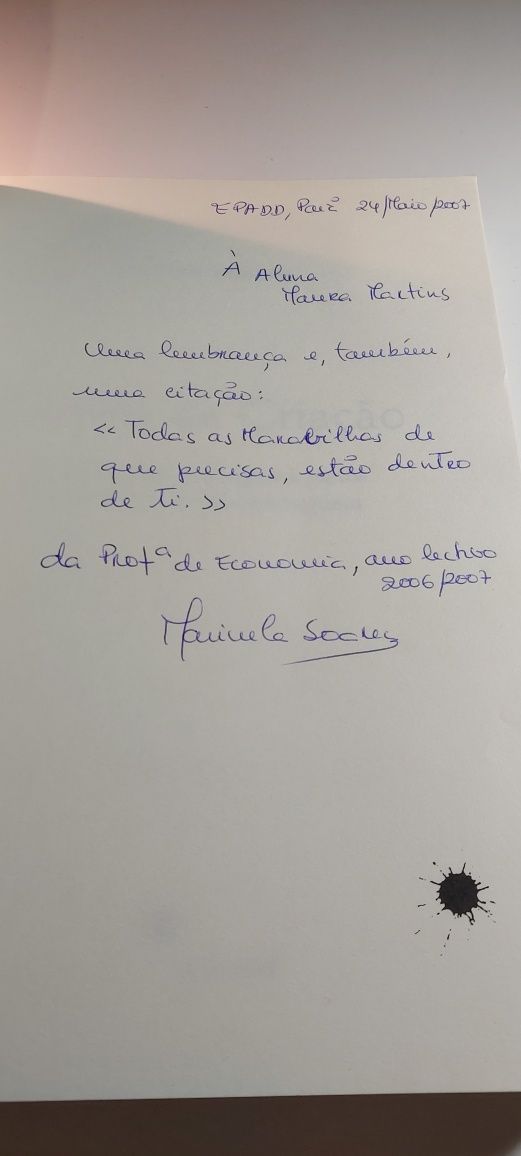 EPADD, Paiã 24/Maio/2007
À Aluna
Maura Martins
Uma lembrança e, também,
uma citação:
<< Todas as Maravilhas de
que precisas, estão dentro
de Ti. >>
da Profª de Economia, ano lectivo
2006/2007
Soares